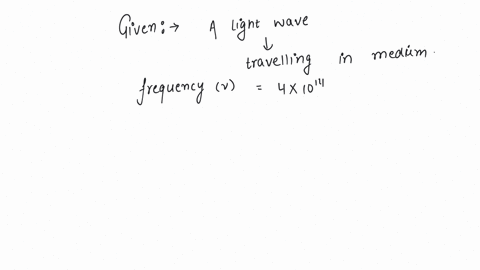 Given:→ A light wave
↓
travelling in medium.
frequency (ν) = 4×10¹⁴